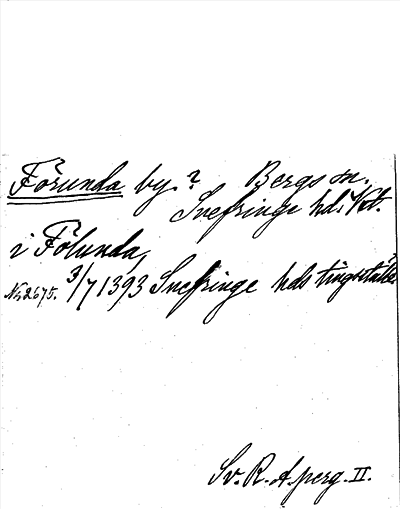 Förunda by.? Bergs sn.
Snefringe hd. Vstm.
i Fölunda,
No 2675. 3/7 1393 Snefringe hds tingsställe
Sv. R. A. perg. II.